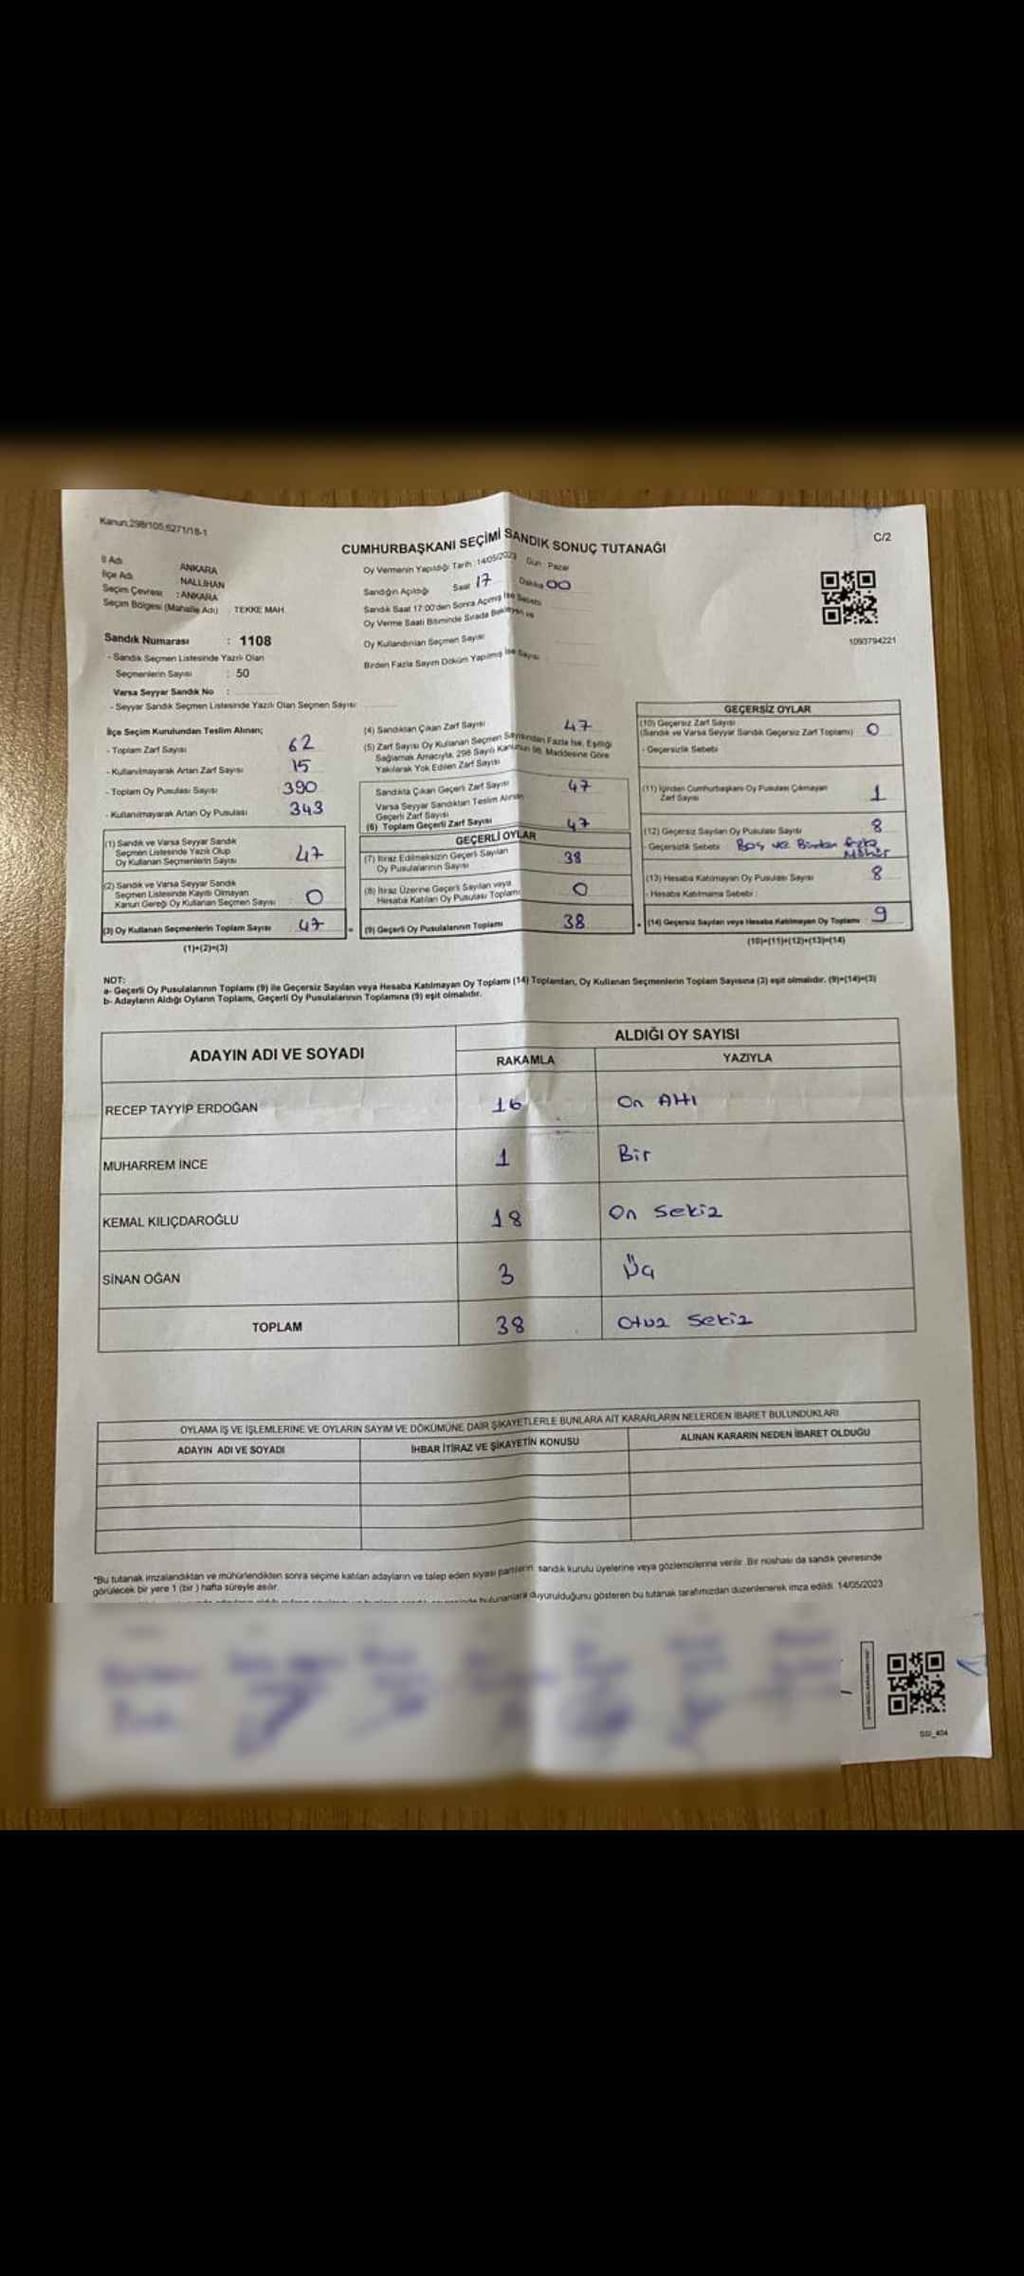 Kanun;298/105,6271/18-1
C/2
CUMHURBAŞKANI SEÇİMİ SANDIK SONUÇ TUTANAĞI
İl Adı : ANKARA
İlçe Adı : NALLIHAN
Seçim Çevresi : ANKARA
Seçim Bölgesi (Mahalle Adı) : TEKKE MAH.
Oy Vermenin Yapıldığı Tarih : 14/05/2023 Gün : Pazar
Sandığın Açıldığı Saat 17 Dakika 00
Sandık Saat 17:00'den Sonra Açılmış İse Sebebi
Oy Verme Saati Bitiminde Sırada Bekleyen ve
Oy Kullandırılan Seçmen Sayısı
Birden Fazla Sayım Döküm Yapılmış İse Sayısı
1093794221
Sandık Numarası : 1108
- Sandık Seçmen Listesinde Yazılı Olan
Seçmenlerin Sayısı : 50
Varsa Seyyar Sandık No :
- Seyyar Sandık Seçmen Listesinde Yazılı Olan Seçmen Sayısı
İlçe Seçim Kurulundan Teslim Alınan;
- Toplam Zarf Sayısı 62
- Kullanılmayarak Artan Zarf Sayısı 15
- Toplam Oy Pusulası Sayısı 390
- Kullanılmayarak Artan Oy Pusulası 343
(1) Sandık ve Varsa Seyyar Sandık
Seçmen Listesinde Yazılı Olup
Oy Kullanan Seçmenlerin Sayısı 47
(2) Sandık ve Varsa Seyyar Sandık
Seçmen Listesinde Kayıtlı Olmayan
Kanun Gereği Oy Kullanan Seçmen Sayısı 0
(3) Oy Kullanan Seçmenlerin Toplam Sayısı 47
(1)+(2)=(3)
(4) Sandıktan Çıkan Zarf Sayısı 47
(5) Zarf Sayısı Oy Kullanan Seçmen Sayısından Fazla İse, Eşitliği
Sağlamak Amacıyla, 298 Sayılı Kanunun 98. Maddesine Göre
Yakılarak Yok Edilen Zarf Sayısı
Sandıkta Çıkan Geçerli Zarf Sayısı 47
Varsa Seyyar Sandıktan Teslim Alınan
Geçerli Zarf Sayısı
(6) Toplam Geçerli Zarf Sayısı 47
GEÇERLİ OYLAR
(7) İtiraz Edilmeksizin Geçerli Sayılan
Oy Pusulalarının Sayısı 38
(8) İtiraz Üzerine Geçerli Sayılan veya
Hesaba Katılan Oy Pusulası Toplamı 0
(9) Geçerli Oy Pusulalarının Toplamı 38
GEÇERSİZ OYLAR
(10) Geçersiz Zarf Sayısı
(Sandık ve Varsa Seyyar Sandık Geçersiz Zarf Toplamı) 0
- Geçersizlik Sebebi
(11) İçinden Cumhurbaşkanı Oy Pusulası Çıkmayan
Zarf Sayısı 1
(12) Geçersiz Sayılan Oy Pusulası Sayısı 8
- Geçersizlik Sebebi Boş ve Birden fazla
Mühür
(13) Hesaba Katılmayan Oy Pusulası Sayısı 8
- Hesaba Katılmama Sebebi :
(14) Geçersiz Sayılan veya Hesaba Katılmayan Oy Toplamı 9
(10)+(11)+(12)+(13)=(14)
NOT:
a- Geçerli Oy Pusulalarının Toplamı (9) ile Geçersiz Sayılan veya Hesaba Katılmayan Oy Toplamı (14) Toplamları, Oy Kullanan Seçmenlerin Toplam Sayısına (3) eşit olmalıdır. (9)+(14)=(3)
b- Adayların Aldığı Oyların Toplamı, Geçerli Oy Pusulalarının Toplamına (9) eşit olmalıdır.
ADAYIN ADI VE SOYADI
ALDIĞI OY SAYISI
RAKAMLA YAZIYLA
RECEP TAYYİP ERDOĞAN 16 On Altı
MUHARREM İNCE 1 Bir
KEMAL KILIÇDAROĞLU 18 On Sekiz
SİNAN OĞAN 3 Üç
TOPLAM 38 Otuz Sekiz
OYLAMA İŞ VE İŞLEMLERİNE VE OYLARIN SAYIM VE DÖKÜMÜNE DAİR ŞİKAYETLERLE BUNLARA AİT KARARLARIN NELERDEN İBARET BULUNDUKLARI
ADAYIN ADI VE SOYADI İHBAR İTİRAZ VE ŞİKAYETİN KONUSU ALINAN KARARIN NEDEN İBARET OLDUĞU
*Bu tutanak imzalandıktan ve mühürlendikten sonra seçime katılan adayların ve talep eden siyasi partilerin sandık kurulu üyelerine veya gözlemcilerine verilir. Bir nüshası da sandık çevresinde
görülecek bir yere 1 (bir ) hafta süreyle asılır.
bulunanlara duyurulduğunu gösteren bu tutanak tarafımızdan düzenlenerek imza edildi. 14/05/2023